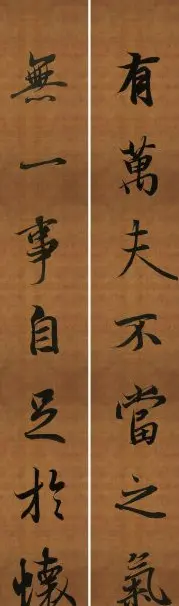 有萬夫不當之氣
無一事自足於懷